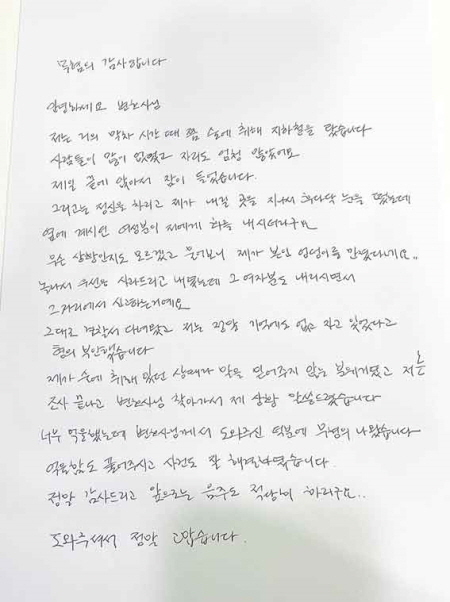 무혐의 감사합니다
안녕하세요 변호사님
저는 거의 막차 시간 때 쯤 술에 취해 지하철을 탔습니다
사람들이 많이 없었고 자리도 엄청 많았어요
제일 끝에 앉아서 잠이 들었습니다.
그리고는 정신을 차리고 제가 내릴 곳을 지나서 화다닥 눈을 떴는데
옆에 계시던 여성분이 저에게 화를 내시더라구요
무슨 상황인지도 모르겠고 물어보니 제가 본인 엉덩이를 만졌다네요..
놀라서 우선 사과드리고 내렸는데 그 여자분도 내리시면서
그자리에서 신고하는거예요
그대로 경찰서 다녀왔고 저는 정말 기억에도 없고 자고 있었다고
혐의 부인했습니다
제가 술에 취해 있던 상태라 말을 믿어주지 않는 분위기였고 저는
조사 끝나고 변호사님 찾아가서 제 상황 말씀드렸습니다
너무 억울했는데 변호사님께서 도와주신 덕분에 무혐의 나왔습니다
억울함도 풀어주시고 사건도 잘 해결되었습니다.
정말 감사드리고 앞으로는 음주도 적당히 하려구요..
도와주셔서 정말 고맙습니다.